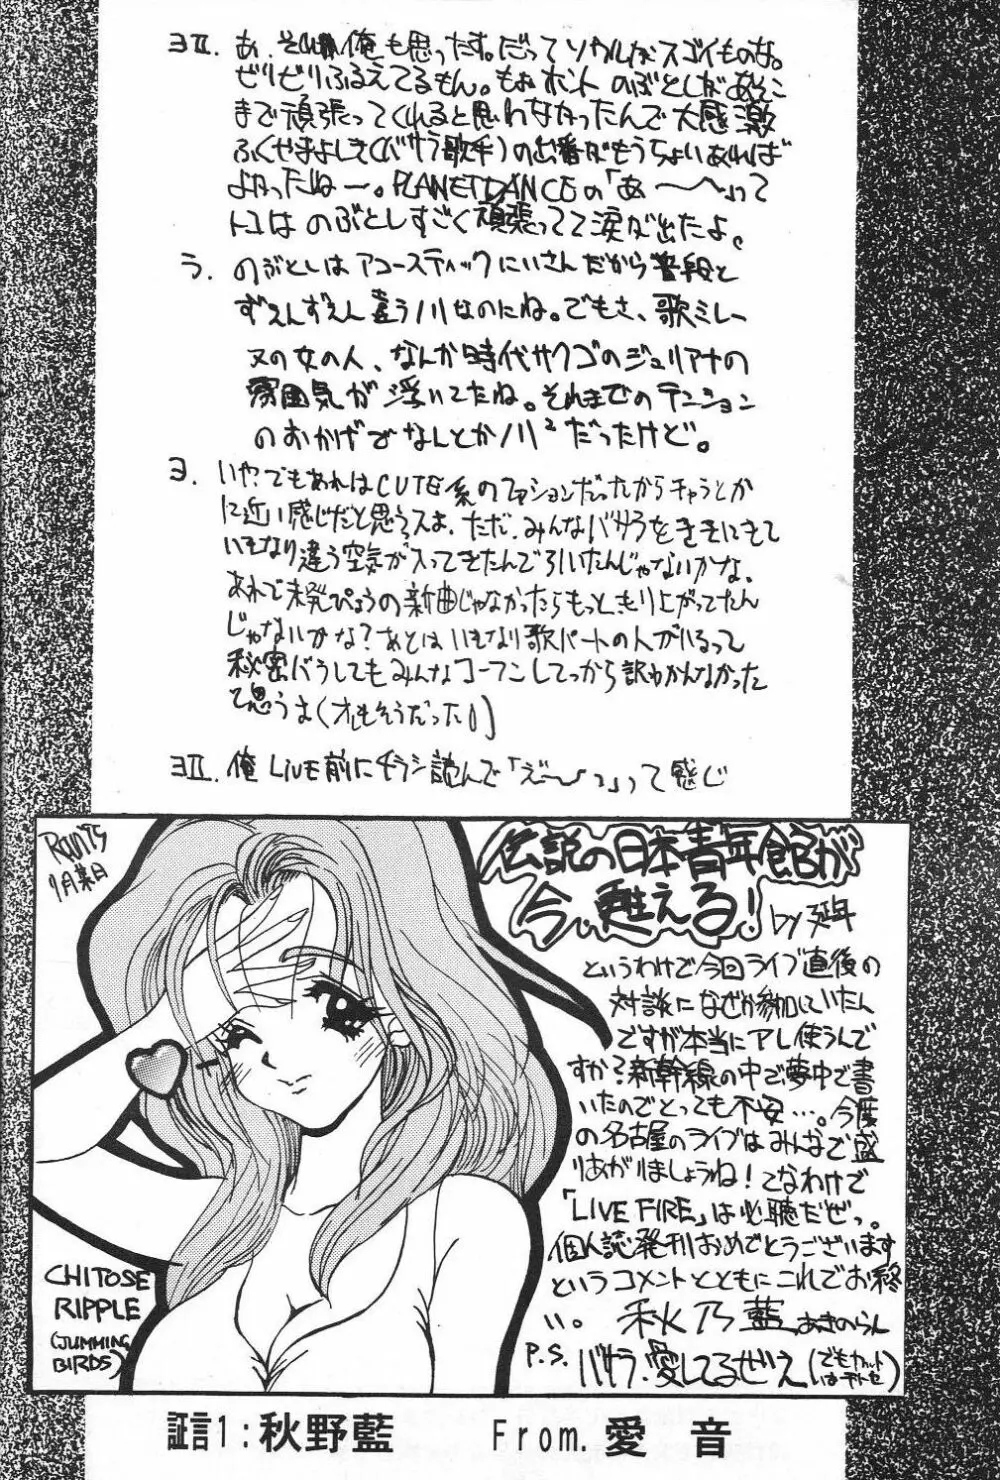 ヨII. あ、それ俺も思ったす。だってソウルがスゴイものな。
ビリビリふるえてるもん。もぉホント のぶとしがあそこ
まで頑張ってくれると思わなかったんで大感激
ふくやまよしき(バサラ歌手)の出番がもうちょいあれば
よかったねー。PLANET DANCEの「あ〜〜」って
トコは のぶとしすごく頑張ってて涙が出たよ。
う. のぶとしはアコースティックにいさんだから普段と
ずぇんずぇん違うノリなのにね。でもさ、歌ミレー
ヌの女の人、なんか時代サクゴのジュリアナの
雰囲気が浮いてたね。それまでのテンション
のおかげでなんとかノリ²だったけど。
ヨ. いや?でもあれはCUTE系のファッションだったからキャラとか
に近い感じだと思うスよ、ただ、みんなバサラをききにきて
いきなり違う空気が入ってきたんで引いたんじゃないかな、
あれで未発ぴょうの新曲じゃなかったらもっともり上がってたん
じゃないかな?あとはいきなり歌パートの人がいるって
秘密バラしてもみんなコーフンしてっから訳わかんなかった
て思うよ(オレもそうだった!)
ヨII. 俺 LIVE前にチラシ読んで「え〜〜っ」って感じ
伝説の日本青年館が
今、甦える!
by 延年
というわけで今回ライブ直後の
対談になぜか参加していたん
ですが本当にアレ使うんで
すか?新幹線の中で夢中で書
いたのでとっても不安…。今度
の名古屋のライブはみんなで盛
りあがりましょうね!てなわけで
「LIVE FIRE」は必聴だぜっ。
個人誌発刊おめでとうございます
というコメントとともにこれでお終
い。 秋乃藍 あきのらん
P.S. バサラ愛してるぜぇ
9月某日
CHITOSE
RIPPLE
(JUMMING
BIRDS)
証言1:秋野藍 From.愛 音